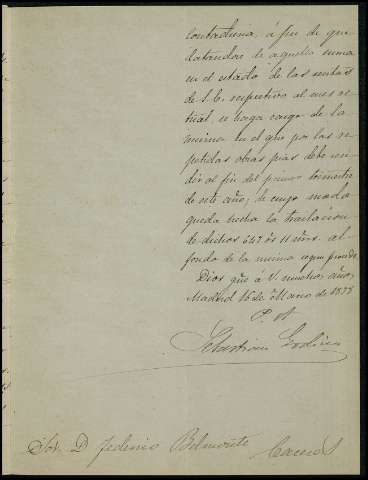 contaduria, á fin de que
datandose de aquella suma
en el estado de las rentas
de S. C. respectivo al mes ac-
tual, se haga cargo de la
misma en el que por las re-
petidas obras pias debe ren-
dir al fin del primer trimestre
de este año; de cuyo modo
queda hecha la traslacion
de dichos 647 rs 11 mrs. al
fondo de la misma segun procede.
Dios gue á V. muchos años,
Madrid 16 de Marzo de 1878
P. A.
Sebastian
Sor. D Federico Belmonte